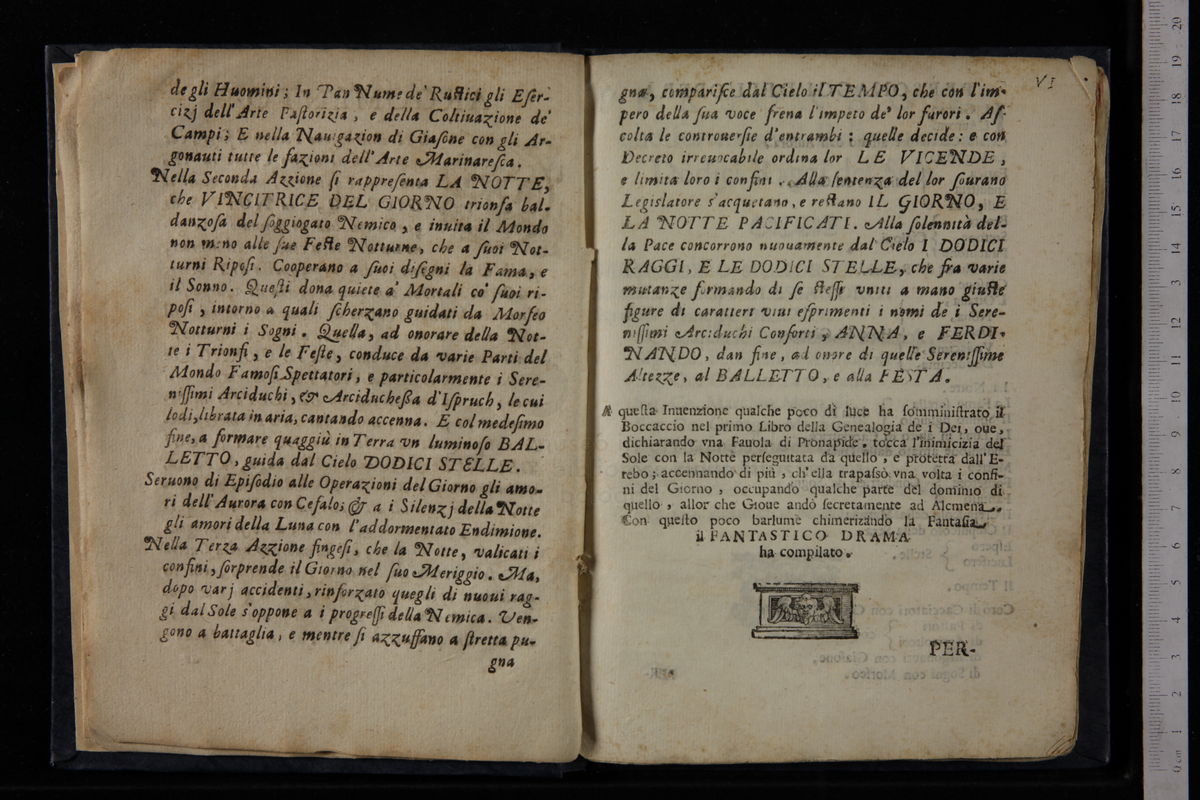 degli Huomini; In Pan Nume de' Rustici gli Eser-
cizj dell'Arte Pastorizia, e della Coltiuazione de'
Campi; E nella Nauigazion di Giasone con gli Ar-
gonauti tutte le fazioni dell'Arte Marinaresca.
Nella Seconda Azzione si rappresenta LA NOTTE,
che VINCITRICE DEL GIORNO trionfa bal-
danzosa del soggiogato Nemico, e inuita il Mondo
non meno alle sue Feste Notturne, che a suoi Not-
turni Riposi. Cooperano a suoi disegni la Fama, e
il Sonno. Questi dona quiete a' Mortali co' suoi ri-
posi, intorno a quali scherzano guidati da Morfeo
Notturni i Sogni. Quella, ad onorare della Not-
te i Trionfi, e le Feste, conduce da varie Parti del
Mondo Famosi Spettatori, e particolarmente i Sere-
nissimi Arciduchi, & Arciduchessa d'Ispruch, le cui
lodi, librata in aria, cantando accenna. E col medesimo
fine, a formare quaggiù in Terra vn luminoso BAL-
LETTO, guida dal Cielo DODICI STELLE.
Seruono di Episodio alle Operazioni del Giorno gli amo-
ri dell'Aurora con Cefalo; & a i Silenzj della Notte
gli amori della Luna con l'addormentato Endimione.
Nella Terza Azzione fingesi, che la Notte, valicati i
confini, sorprende il Giorno nel suo Meriggio. Ma,
dopo varj accidenti, rinforzato quegli di nuoui rag-
gi dal Sole s'oppone a i progressi della Nemica. Ven-
gono a battaglia, e mentre si azzuffano a stretta pu-
gna
VI
gna, comparisce dal Cielo il TEMPO, che con l'im-
pero della sua voce frena l'impeto de' lor furori. As-
colta le controuersie d'entrambi: quelle decide: e con
Decreto irreuocabile ordina lor LE VICENDE,
e limita loro i confini. Alla sentenza del lor sourano
Legislatore s'acquetano, e restano IL GIORNO, E
LA NOTTE PACIFICATI. Alla solennità del-
la Pace concorrono nuouamente dal Cielo I DODICI
RAGGI, E LE DODICI STELLE, che fra varie
mutanze formando di se stessi vniti a mano giuste
figure di caratteri viui esprimenti i nomi de i Sere-
nissimi Arciduchi Consorti, ANNA, e FERDI-
NANDO, dan fine, ad onore di quelle Serenissime
Altezze, al BALLETTO, e alla FESTA.
A questa Inuenzione qualche poco di luce ha somministrato il
Boccaccio nel primo Libro della Genealogia de i Dei, oue,
dichiarando vna Fauola di Pronapide, tocca l'inimicizia del
Sole con la Notte perseguitata da quello, e protetta dall'E-
rebo; accennando di più, ch'ella trapassò vna volta i confi-
ni del Giorno, occupando qualche parte del dominio di
quello, allor che Gioue andò secretamente ad Alcmena.
Con questo poco barlume chimerizando la Fantasia
il FANTASTICO DRAMA
ha compilato.
PER-